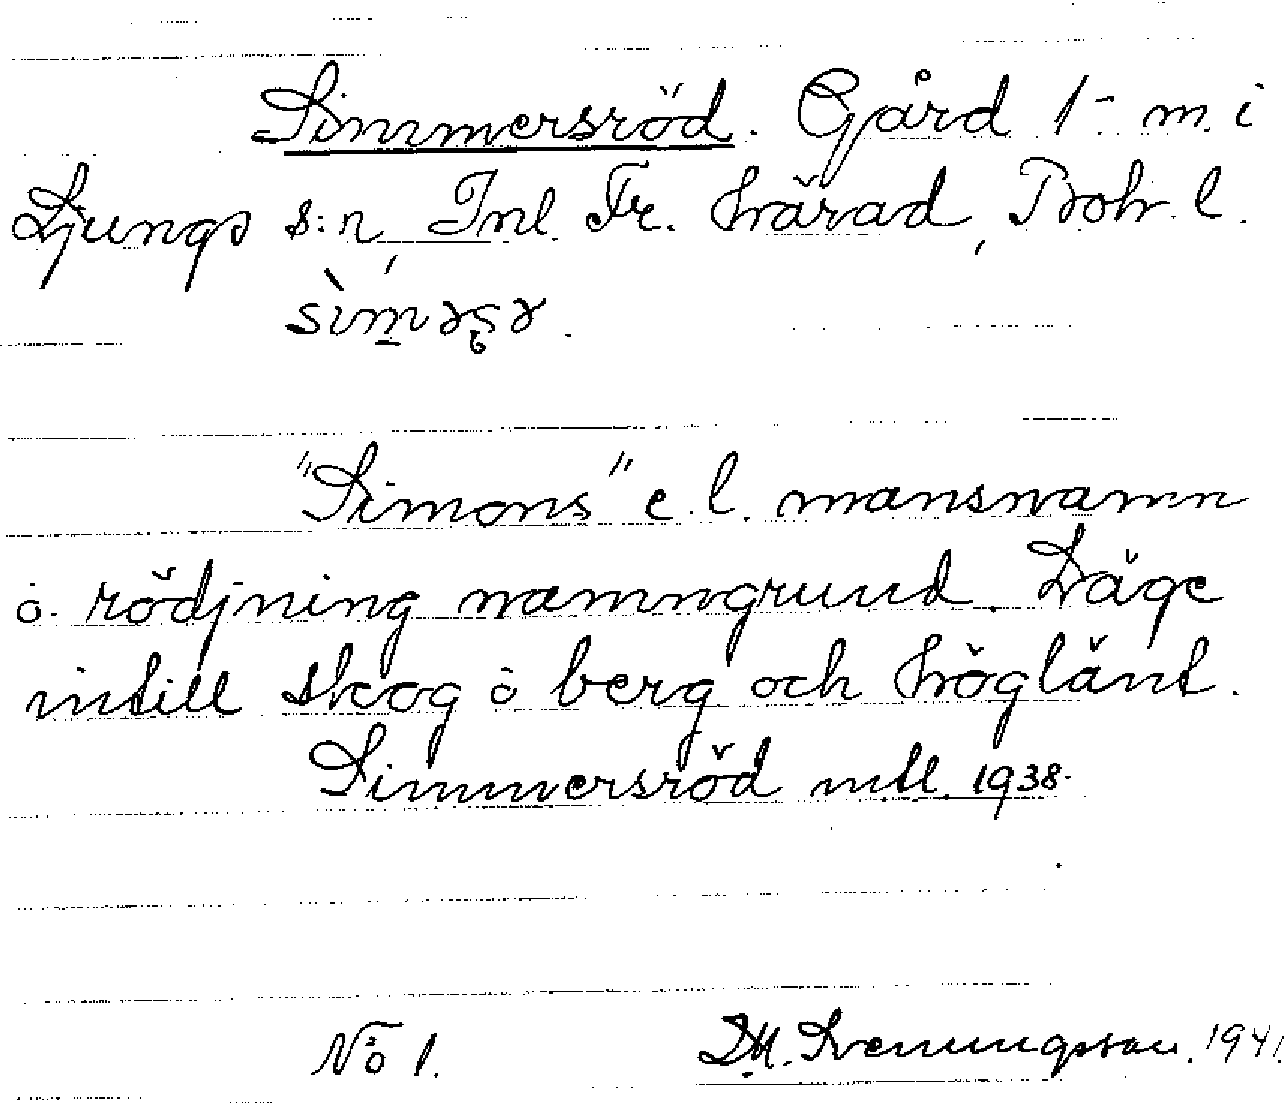 Simmersröd. Gård 1- m. i
Ljungs s:n, Inl. Fr. härad, Boh. l.
sìmәʂә.
"Simons" e. l. mansnamn
o. rödjning namngrund. Läge
intill skog o berg och höglänt.
Simmersröd mtl. 1938.
No 1. D.M. Svenungsson. 1941.